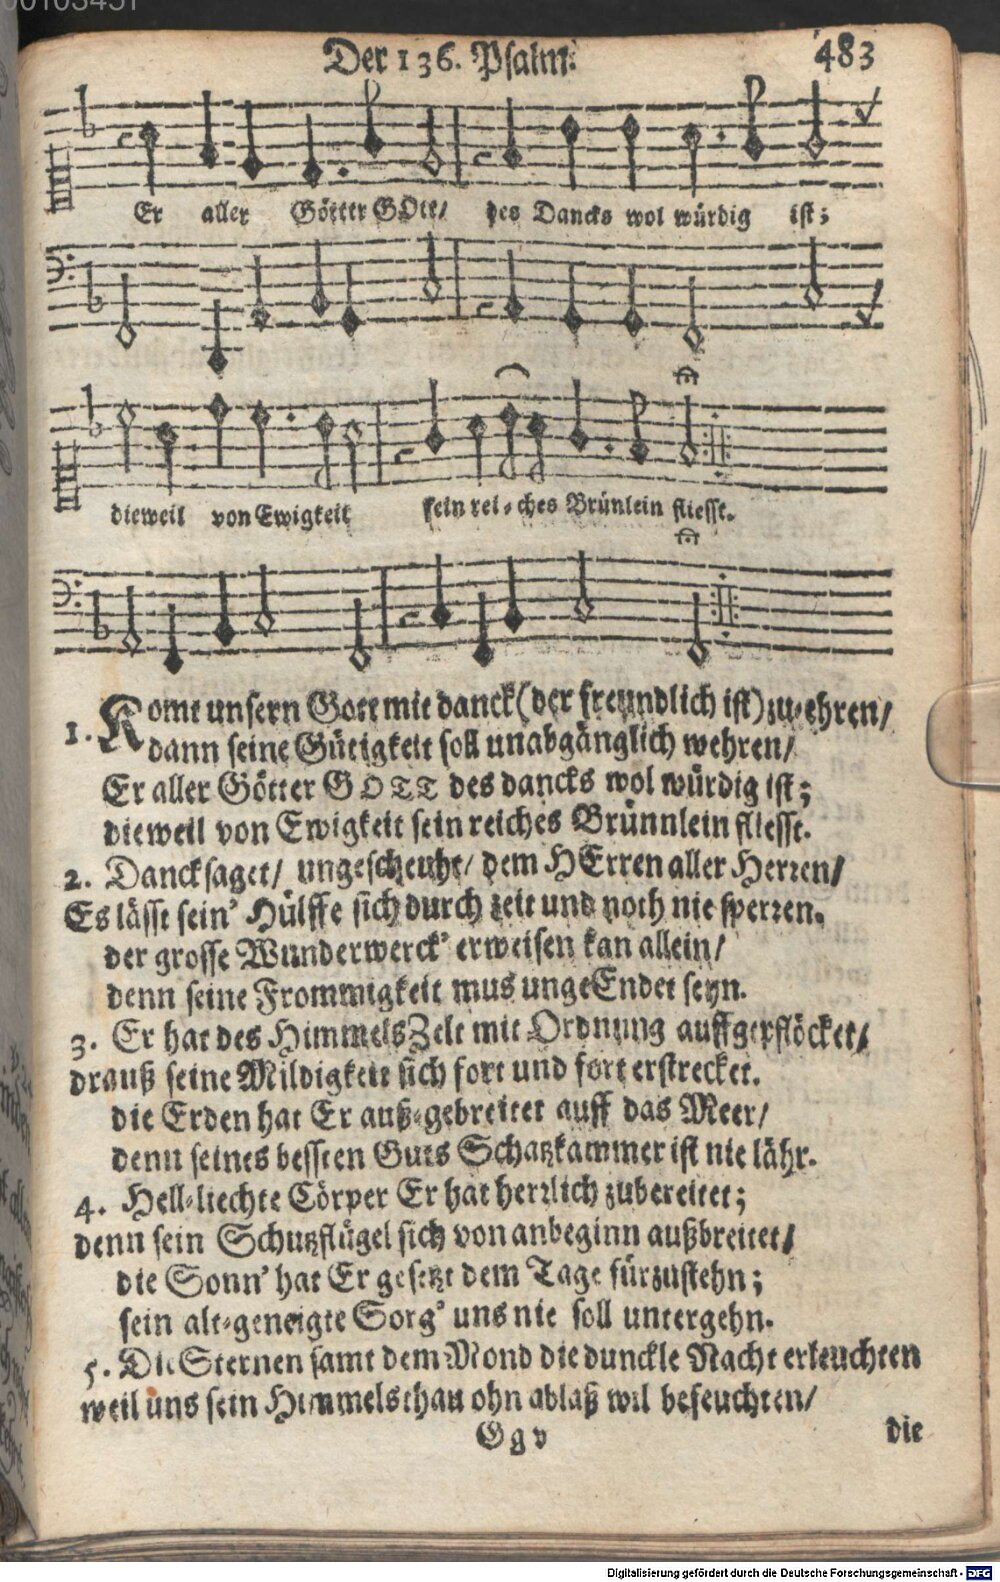 00103451
Der 136. Psalm.
483
Er aller Götter GOtt/ des Dancks wol würdig ist;
dieweil von Ewigkeit sein rei-ches Brünlein fliesst.
1. Komt unsern Gott mit danck (der freundlich ist) zu-ehren/
dann seine Gütigkeit soll unabgänglich wehren/
Er aller Götter GOTT des dancks wol würdig ist;
dieweil von Ewigkeit sein reiches Brünnlein fliesst.
2. Dancksaget/ ungescheuht/ dem HErren aller Herren/
Es lässt sein' Hülffe sich durch zeit und noth nie sperren.
der grosse Wunderwerck' erweisen kan allein/
denn seine Frommigkeit mus ungeEndet seyn.
3. Er hat des HimmelsZelt mit Ordnung auffgepflöcket/
drauß seine Mildigkeit sich fort und fort erstrecket.
die Erden hat Er auß-gebreitet auff das Meer/
denn seines bessten Guts Schatzkammer ist nie lähr.
4. Hell-liechte Cörper Er hat herrlich zubereitet;
denn sein Schutzflügel sich von anbeginn außbreitet/
die Sonn' hat Er gesetzt dem Tage fürzustehn;
sein alt-geneigte Sorg' uns nie soll untergehn.
5. Die Sternen samt dem Mond die dunckle Nacht erleuchten
weil uns sein Himmelsthau ohn ablaß wil befeuchten/
Gg v
die
Digitalisierung gefördert durch die Deutsche Forschungsgemeinschaft - DFG